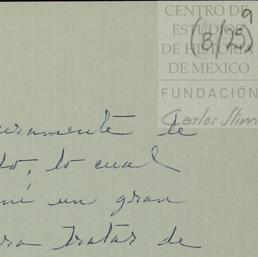 CENTRO DE
ESTUDIOS
DE HISTORIA
DE MEXICO
FUNDACIÓN
Carlos Slim
9
(8/25)
de
do, lo cual
un gran
tratar de